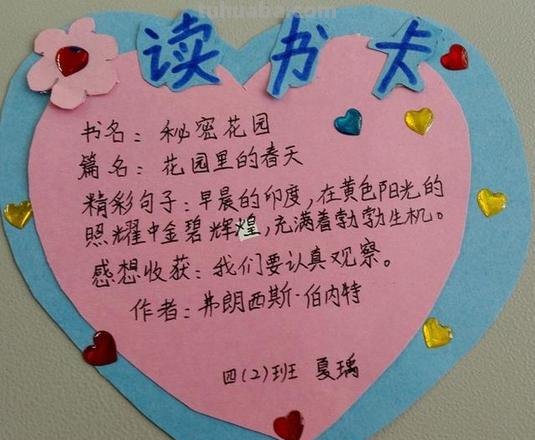 tuhuaba.com
读书卡
书名：秘密花园
篇名：花园里的春天
精彩句子：早晨的印度，在黄色阳光的
照耀中金碧辉煌，充满着勃勃生机。
感想收获：我们要认真观察。
作者：弗朗西斯·伯内特
四（2）班 夏瑀